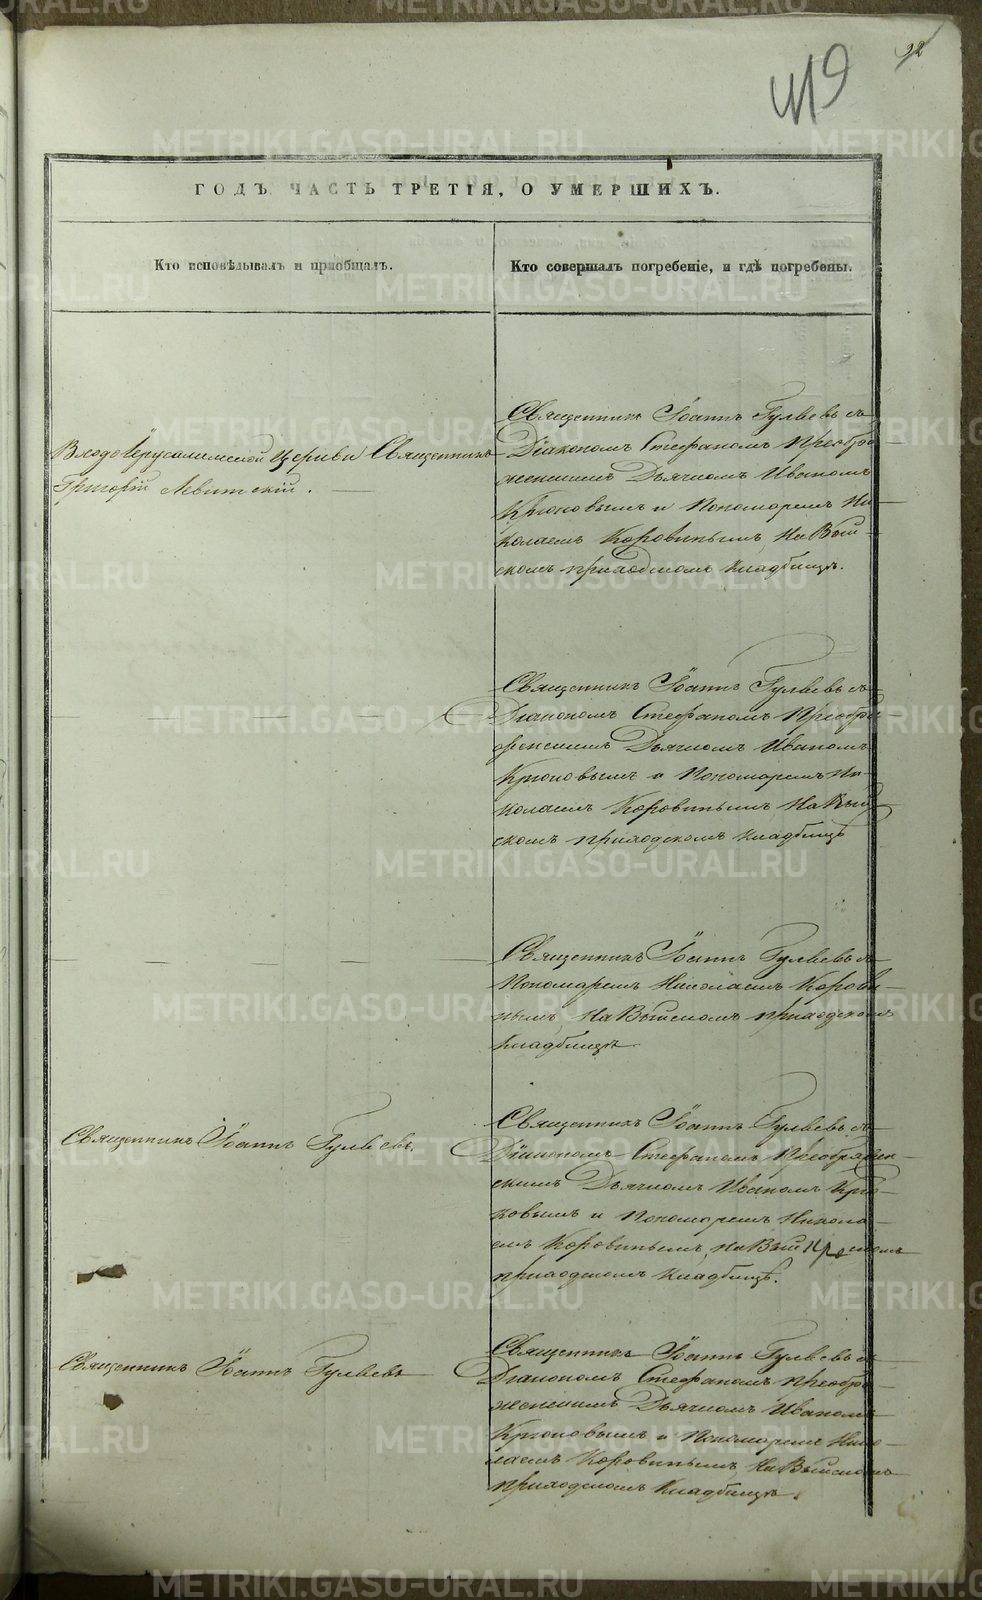 92
419
ГОДЪ. ЧАСТЬ ТРЕТІЯ, О УМЕРШИХЪ.
Кто исповѣдывалъ и пріобщалъ.
Кто совершалъ погребеніе, и гдѣ погребены.
Входо Іерусалимской Церкви Священникъ
Григорій Левитскій.
Священникъ Іоаннъ Гуляевъ съ
Діакономъ Стефаномъ Преобра-
женскимъ Дьячкомъ Иваномъ
Крюковымъ и Пономаремъ Ни-
колаемъ Коровинымъ, На Вый-
скомъ приходскомъ кладбищѣ.
Священникъ Іоаннъ Гуляевъ съ
Діакономъ Стефаномъ Преобра-
женскимъ Дьячкомъ Иваномъ
Крюковымъ и Пономаремъ Ни-
колаемъ Коровинымъ На Вый-
скомъ приходскомъ кладбищѣ
Священникъ Іоаннъ Гуляевъ съ
Пономаремъ Николаемъ Корови-
нымъ, На Выйскомъ приходскомъ
кладбищѣ.
Священникъ Іоаннъ Гуляевъ.
Священникъ Іоаннъ Гуляевъ съ
Діакономъ Стефаномъ Преображен-
скимъ Дьячкомъ Иваномъ Крю-
ковымъ и Пономаремъ Никола-
емъ Коровинымъ, На Вый скомъ
приходскомъ кладбищѣ.
Священникъ Іоаннъ Гуляевъ
Священникъ Іоаннъ Гуляевъ съ
Діакономъ Стефаномъ Преобра-
женскимъ Дьячкомъ Иваномъ
Крюковымъ и Пономаремъ Нико-
лаемъ Коровинымъ, На Выйскомъ
приходскомъ Кладбищѣ.
METRIKI.GASO-URAL.RU